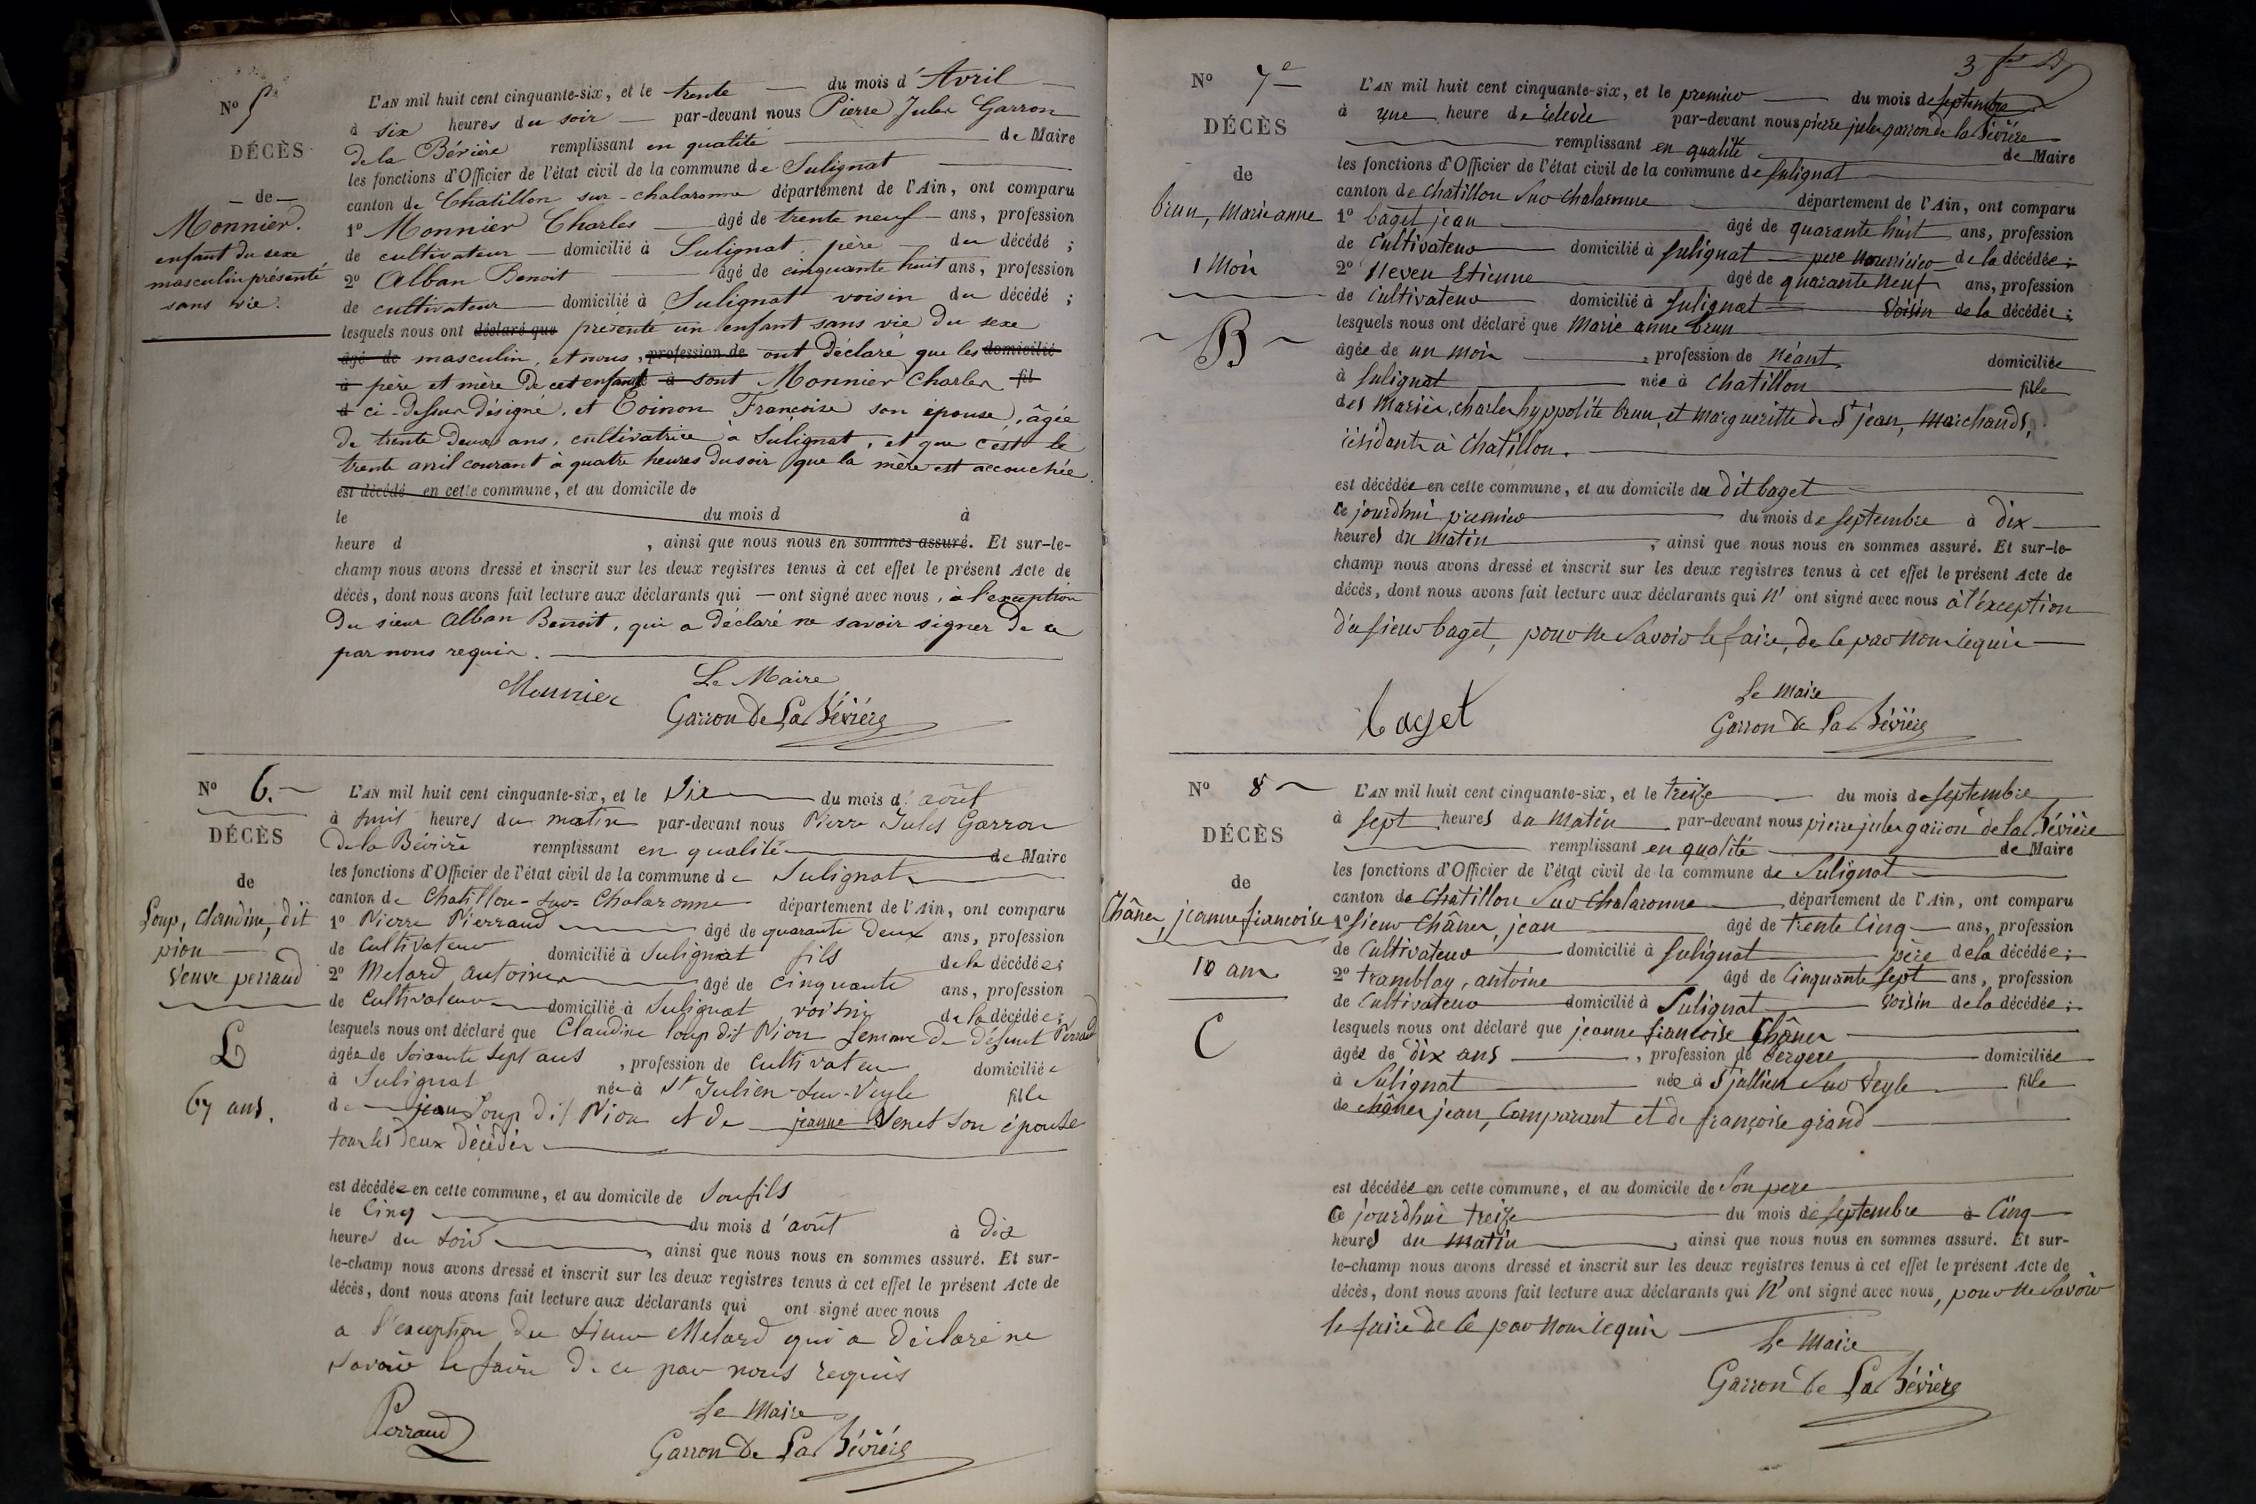 N° 5e
DÉCÈS
de
Monnier.
enfant du sexe
masculin présenté
sans vie.
L'AN mil huit cent cinquante-six, et le trente du mois d'Avril
à six heures du soir par-devant nous Pierre Jules Garron
de la Bévière remplissant en qualité de Maire
les fonctions d'Officier de l'état civil de la commune de Sulignat
canton de Chatillon sur-chalaronne département de l'Ain, ont comparu
1° Monnier Charles âgé de trente neuf ans, profession
de cultivateur domicilié à Sulignat père du décédé ;
2° Alban Benoit âgé de cinquante huit ans, profession
de cultivateur domicilié à Sulignat voisin du décédé ;
lesquels nous ont déclaré que présenté un enfant sans vie du sexe
âgé de masculin, et nous, profession de ont déclaré que les domicilié
à père et mère de cet enfant à sont Monnier Charles fil
d ci-dessus désigné, et Coinon Françoise son épouse, âgée
de trente deux ans, cultivatrice à Sulignat, et que c'est le
trente avril courant à quatre heures du soir que la mère est accouchée
est décédé en cette commune, et au domicile de
le du mois d à
heure d , ainsi que nous nous en sommes assuré. Et sur-le-
champ nous avons dressé et inscrit sur les deux registres tenus à cet effet le présent Acte de
décès, dont nous avons fait lecture aux déclarants qui ont signé avec nous, à l'exception
du sieur Alban Benoit, qui a déclaré ne savoir signer de ce
par nous requis.
Monnier
Le Maire
Garron De La Bévière
N° 6.
DÉCÈS
de
Loup, Claudine, dit
pion
veuve perraud
L
67 ans.
L'AN mil huit cent cinquante-six, et le six du mois d'août
à huit heures du matin par-devant nous Pierre Jules Garron
de la Bévière remplissant en qualité de Maire
les fonctions d'Officier de l'état civil de la commune de Sulignat
canton de Chatillon-sur-Chalaronne département de l'Ain, ont comparu
1° Pierre Pierraud âgé de quarante deux ans, profession
de Cultivateur domicilié à Sulignat fils de la décédée ;
2° Melard Antoine âgé de cinquante ans, profession
de Cultivateur domicilié à Sulignat voisin de la décédée ;
lesquels nous ont déclaré que Claudine loup dit Pion femme de défunt Perraud
âgée de Soixante Sept ans , profession de Cultivateur domiciliée
à Sulignat née à St Julien-sur-Veyle fille
de jean Loup dit Pion et de jeanne Venet son épouse
tous les deux décédés
est décédée en cette commune, et au domicile de son fils
le Cinq du mois d'août à Dix
heures du soir , ainsi que nous nous en sommes assuré. Et sur-
le-champ nous avons dressé et inscrit sur les deux registres tenus à cet effet le présent Acte de
décès, dont nous avons fait lecture aux déclarants qui ont signé avec nous
a l'exception du Sieur Melard qui a déclaré ne
savoir le faire de ce par nous requis
Perraud
Le Maire
Garron De La Bévière
3
N° 7e
DÉCÈS
de
brun, Marie anne
1 Mois
B
L'AN mil huit cent cinquante-six, et le premier du mois de septembre
à une heure de relevée par-devant nous pierre jules garron de la Bévière
remplissant en qualité de Maire
les fonctions d'Officier de l'état civil de la commune de Sulignat
canton de Chatillon sur Chalaronne département de l'Ain, ont comparu
1° baget jean âgé de quarante huit ans, profession
de Cultivateur domicilié à Sulignat pere nourricier de la décédée ;
2° Neveu Etienne âgé de quarante neuf ans, profession
de Cultivateur domicilié à Sulignat Voisin de la décédée ;
lesquels nous ont déclaré que Marie anne brun
âgée de un mois , profession de Néant domiciliée
à Sulignat née à Chatillon fille
des Mariés, charles hyppolite brun, et margueritte de St jean, marchands,
résidants à Chatillon.
est décédée en cette commune, et au domicile du dit baget
ce jourdhui premier du mois de septembre à dix
heures du matin , ainsi que nous nous en sommes assuré. Et sur-le-
champ nous avons dressé et inscrit sur les deux registres tenus à cet effet le présent Acte de
décès, dont nous avons fait lecture aux déclarants qui n'ont signé avec nous à l'exception
du sieur baget, pour ne savoir le faire, de ce par nous requis
baget
Le Maire
Garron De La Bévière
N° 8
DÉCÈS
de
Chânes, jeanne françoise
10 ans
C
L'AN mil huit cent cinquante-six, et le treize du mois de septembre
à sept heures du Matin par-devant nous pierre jules garron de la Bévière
remplissant en qualité de Maire
les fonctions d'Officier de l'état civil de la commune de Sulignat
canton de Chatillon sur Chalaronne département de l'Ain, ont comparu
1° sieur Chânes, jean âgé de trente Cinq ans, profession
de Cultivateur domicilié à Sulignat père de la décédée ;
2° tramblay, antoine âgé de Cinquante sept ans, profession
de Cultivateur domicilié à Sulignat Voisin de la décédée ;
lesquels nous ont déclaré que jeanne françoise Chânes
âgée de dix ans , profession de bergere domiciliée
à Sulignat née à St jullien Sur Veyle fille
de chânes jean, Comparant et de françoise grand
est décédée en cette commune, et au domicile de Son pere
ce jourdhui treize du mois de septembre à Cinq
heures du Matin , ainsi que nous nous en sommes assuré. Et sur-
le-champ nous avons dressé et inscrit sur les deux registres tenus à cet effet le présent Acte de
décès, dont nous avons fait lecture aux déclarants qui n'ont signé avec nous, pour ne Savoir
le faire de ce par nous requis
Le Maire
Garron De La Bévière